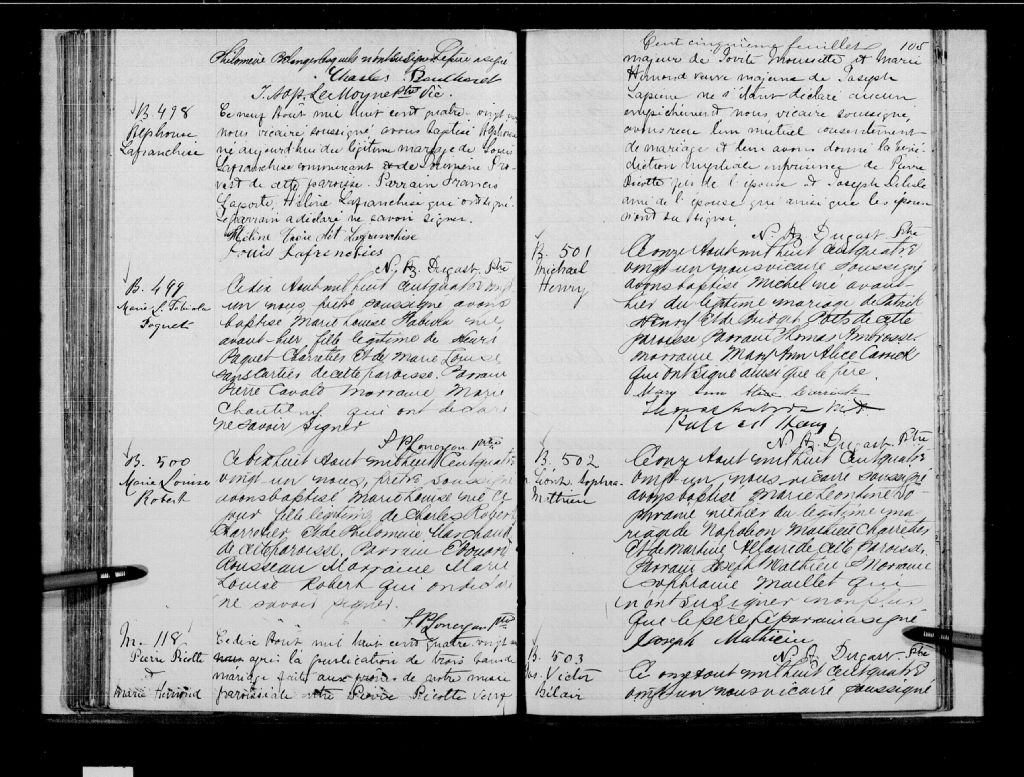 Philomène Bélanger lesquels n'ont su signer. Le père a signé
Charles Bouchard
J. Bap. LeMoyne Ptre Vic.
B. 498
Alphonse
Lafranchise
Ce neuf Août mil huit cent quatre-vingt un
nous vicaire soussigné avons baptisé Alphonse
né aujourd'hui du légitime mariage de Louis
Lafranchise commerçant et de Hermine Pro-
vost de cette paroisse. Parrain Francis
Laporte, Hélène Lafranchise qui ont signé
le parrain a déclaré ne savoir signer.
dit Lafranchise
Louis Lafranchise
N. A. Dugast Ptre
B. 499
Marie L. Fabiola
Paquet
Ce dix Aout mil huit cent quatre vingt
un nous, prêtre soussigné avons
baptisé Marie Louise Fabiola née
avant-hier, fille légitime de Henri
Paquet Charretier Et de Marie Louise
Sanscartier de cette paroisse. Parrain
Pierre Marraine Marie
qui ont déclaré
ne savoir signer
ptre
B. 500
Marie Louise
Robert
Ce dix huit Aout mil huit Cent quatre
vingt un nous, prêtre soussigné
avons baptisé Marie Louise née ce
jour fille légitime de Charles Robert
Charretier, Et de Philomène Marchand
de cette paroisse. Parrain Edouard
Rousseau Marraine Marie
Louise Robert qui ont déclaré
ne savoir signer.
ptre
M. 118.
Pierre Picotte
et
Marie Hémond
Ce dix Août mil huit cent quatre vingt un
nous après la publication de trois bans de
mariage faite aux prônes de notre messe
paroissiale entre Pierre Picotte veuf
Cent cinquième feuillet 105
majeur de Jovite Moussette et Marie
Hémond veuve majeure de Joseph
Lapierre ne s'étant déclaré aucun
empêchement nous vicaire soussigné,
avons reçu leur mutuel consentement
de mariage et leur avons donné la béné-
diction nuptiale en présence de Pierre
Picotte fils de l'époux et Joseph Delisle
ami de l'épouse qui ainsi que les époux
n'ont su signer
N. A. Dugast Ptre
B. 501
Michael
Henry
Ce onze Aout mil huit Cent quatre
vingt un nous vicaire soussigné
avons baptisé Michel né avant-
hier du légitime mariage de Patrick
Henry Et de Bridget Potts de cette
paroisse Parrain Thomas Ambrosse
marraine Mary Ann Alice Carrick
qui ont signé ainsi que le père.
Mary Ann Alice Carrick
N. A. Dugast Ptre
B. 502
M. Léont. Sophro.
Mathieu
Ce onze Aout mil huit Cent quatre
vingt un nous vicaire soussigné
avons baptisé Marie Léontine So-
phranie née hier du légitime ma-
riage de Napoléon Mathieu Charretier
Et de Martine de cette Paroisse.
Parrain Joseph Mathieu Marraine
Sophranie Maillet qui
n'ont su signer non plus
que le père le parrain a signé
Joseph Mathieu
N. A. Dugast Ptre
B. 503
Jos. Victor
Bélair
Ce onze Aout mil huit Cent quatre
vingt un nous vicaire soussigné